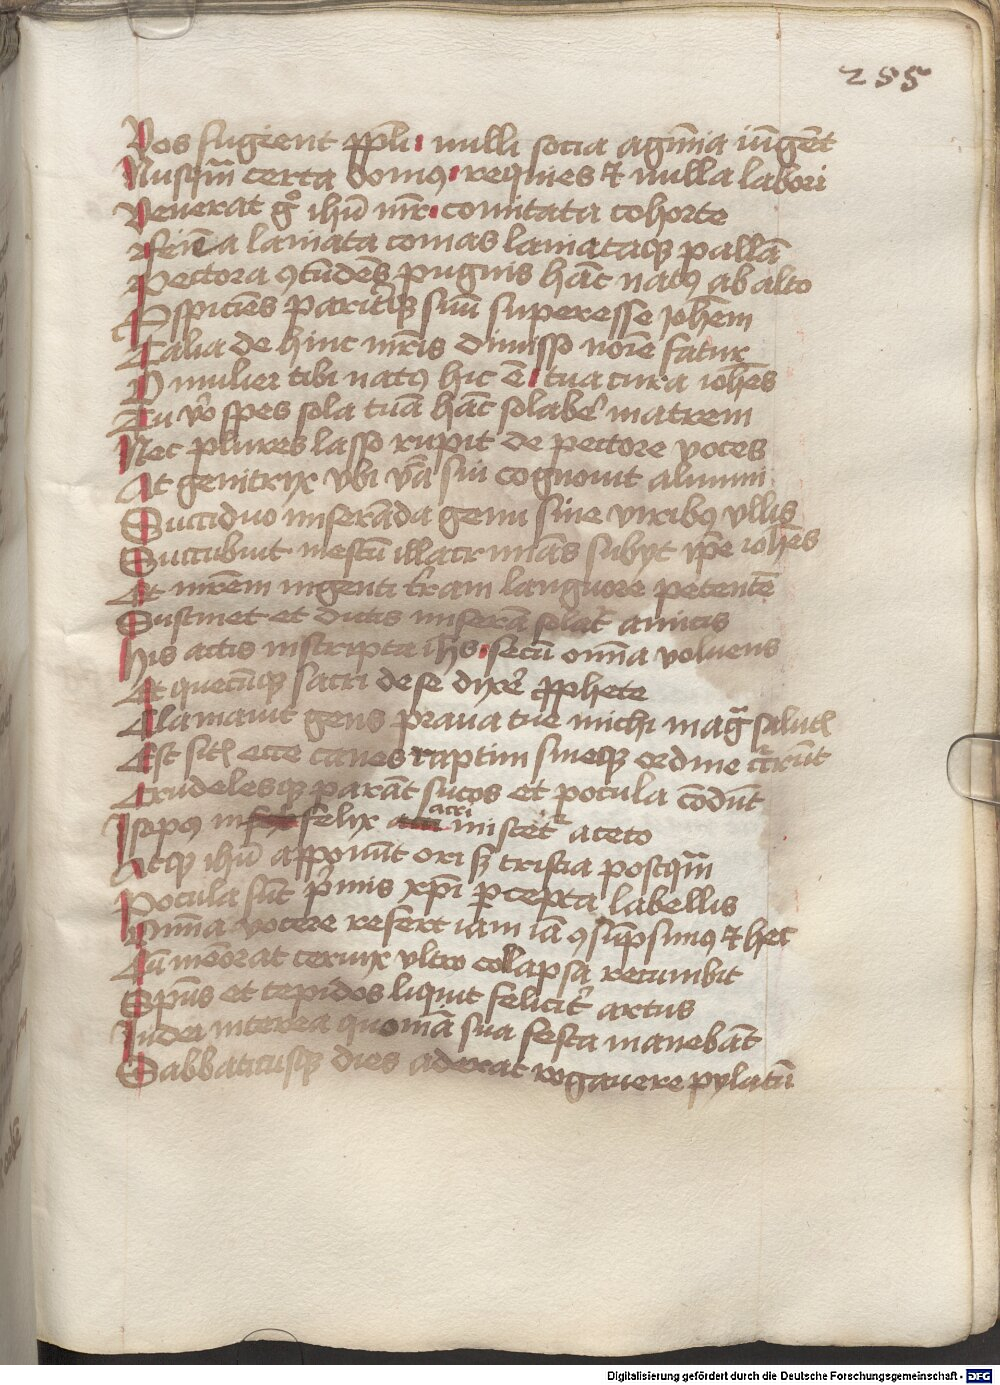 255
Vos fugient ppl̄i nulli socia agm̄ia iūgēt
Nusqm̄ certa domꝰ requies et nulla labori
Venerat gͦ ihū mr̄ comitata cohorte
Femēa laniata comas laniataqꝫ pallā
Pectora ꝯtūdēs pugnis hāc natꝰ ab alto
Aspiciēs pariterqꝫ suū superesse ioh̄em
Talia de hinc mr̄is dimisso nōīe fatur
O mulier tibi natꝰ hic ē tua cura ioh̄es
Tu vͦo spes sola tuā hāc solabeʳ matrem
Nec plures lasso rupit de pectore voces
At genitryx vbi vāa sui cognouit alumni
Succiduo miserāda genu sine viribꝰ vllis
Succubuit mestū illacrimās subyt ip̄e ioh̄es
Et mr̄em ingenti tr̄am languore petentē
Sustinet et dictis miserā solatʳ amicis
His actis inscripta ih̄s secū om̄ia voluens
Et quecūqꝫ sacri de se dixeʳ ꝓphete
Clamauit gens praua tue michi magͣ salutꝭ
Est sitꝭ ecce canes raptim sineqꝫ ordine cͣrrūt
Crudelesqꝫ parāt sucos et pocula cōdūt
Isopꝰ infelix acri miscetʳ aceto
Atqꝫ ihū apponūt ori sꝫ tristia postqm̄
Pocula sūt pͥmis xp̄i ꝑcepta labellis
Om̄ia vocere refert iam iā ꝯsūpsimꝰ et hec
Dū mēorat ceruix vltro colapsa recumbit
Sp̄us et tepidos liquit felicitʳ artus
Iudei interea quoniā sua festa manebāt
Sabbaticusqꝫ dies aderat rogauere pylatū
Digitalisierung gefördert durch die Deutsche Forschungsgemeinschaft - DFG